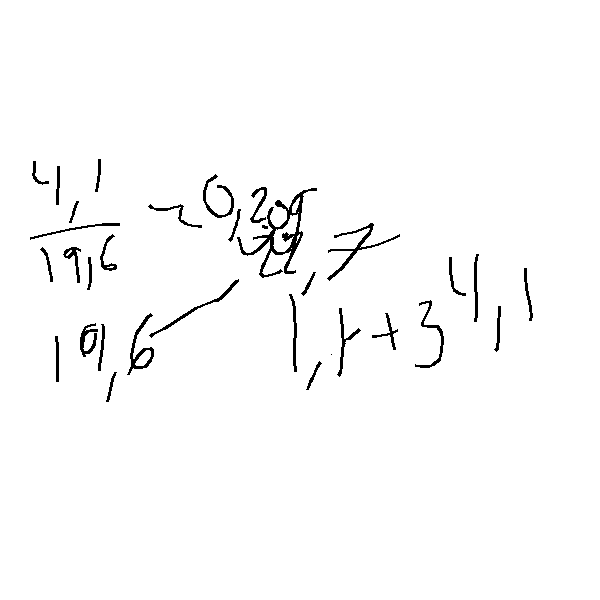 4,1
19,6
~ 0,209
22,7
19,6
1,1+3 4,1